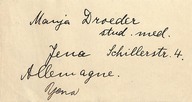 Marija Droeder
stud. med.
Jena Schillerstr. 4.
Allemagne.
Yena